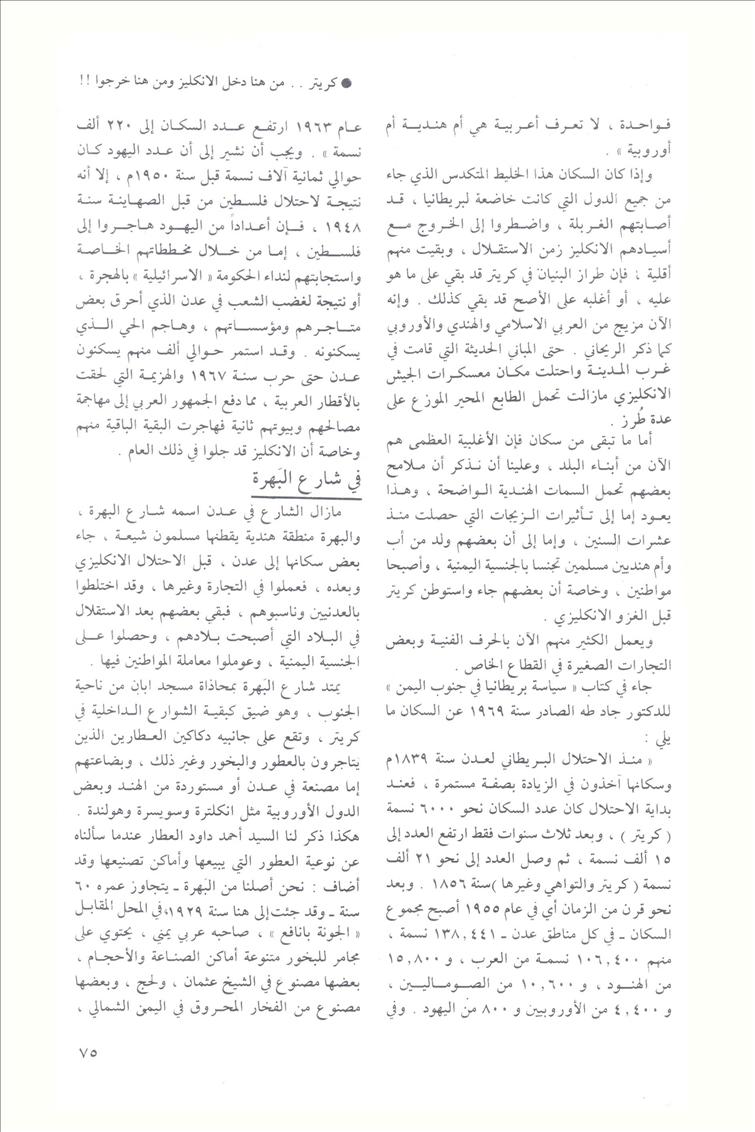 ● كريتر . . من هنا دخل الانكليز ومن هنا خرجوا !!
فواحدة ، لا تعرف أعربية هي أم هندية أم
أوروبية » .
وإذا كان السكان هذا الخليط المتكدس الذي جاء
من جميع الدول التي كانت خاضعة لبريطانيا ، قد
أصابتهم الغربلة ، واضطروا إلى الخروج مع
أسيادهم الانكليز زمن الاستقلال ، وبقيت منهم
أقلية ، فإن طراز البنيان في كريتر قد بقي على ما هو
عليه ، أو أغلبه على الأصح قد بقي كذلك . وإنه
الآن مزيج من العربي الاسلامي والهندي والأوروبي
كما ذكر الريحاني . حتى المباني الحديثة التي قامت في
غرب المدينة واحتلت مكان معسكرات الجيش
الانكليزي مازالت تحمل الطابع المحير الموزع على
عدة طُرز .
أما ما تبقى من سكان فإن الأغلبية العظمى هم
الآن من أبناء البلد ، وعلينا أن نذكر أن ملامح
بعضهم تحمل السمات الهندية الواضحة ، وهذا
يعود إما إلى تأثيرات الزيجات التي حصلت منذ
عشرات السنين ، وإما إلى أن بعضهم ولد من أب
وأم هنديين مسلمين تجنسا بالجنسية اليمنية ، وأصبحا
مواطنين ، وخاصة أن بعضهم جاء واستوطن كريتر
قبل الغزو الانكليزي .
ويعمل الكثير منهم الآن بالحرف الفنية وبعض
التجارات الصغيرة في القطاع الخاص .
جاء في كتاب « سياسة بريطانيا في جنوب اليمن »
للدكتور جاد طه الصادر سنة ١٩٦٩ عن السكان ما
يلي :
« منذ الاحتلال البريطاني لعدن سنة ١٨٣٩م
وسكانها آخذون في الزيادة بصفة مستمرة ، فعند
بداية الاحتلال كان عدد السكان نحو ٦٠٠٠ نسمة
( كريتر ) ، وبعد ثلاث سنوات فقط ارتفع العدد إلى
١٥ ألف نسمة ، ثم وصل العدد إلى نحو ٢١ ألف
نسمة ( كريتر والتواهي وغيرها )سنة ١٨٥٦ . وبعد
نحو قرن من الزمان أي في عام ١٩٥٥ أصبح مجموع
السكان ـ في كل مناطق عدن ـ ١٣٨,٤٤١ نسمة ،
منهم ١٠٦,٤٠٠ نسمة من العرب ، و ١٥,٨٠٠
من الهنود ، و ١٠,٦٠٠ من الصوماليين ،
و ٤,٤٠٠ من الأوروبيين و ٨٠٠ من اليهود . وفي
عام ١٩٦٣ ارتفع عدد السكان إلى ٢٢٠ ألف
نسمة » . ويجب أن نشير إلى أن عدد اليهود كان
حوالي ثمانية آلاف نسمة قبل سنة ١٩٥٠م ، إلا أنه
نتيجة لاحتلال فلسطين من قبل الصهاينة سنة
١٩٤٨ ، فإن أعداداً من اليهود هاجروا إلى
فلسطين ، إما من خلال مخططاتهم الخاصة
واستجابتهم لنداء الحكومة « الاسرائيلية » بالهجرة ،
أو نتيجة لغضب الشعب في عدن الذي أحرق بعض
متاجرهم ومؤسساتهم ، وهاجم الحي الذي
يسكنونه . وقد استمر حوالي ألف منهم يسكنون
عدن حتى حرب سنة ١٩٦٧ والهزيمة التي لحقت
بالأقطار العربية ، مما دفع الجمهور العربي إلى مهاجمة
مصالحهم وبيوتهم ثانية فهاجرت البقية الباقية منهم
وخاصة أن الانكليز قد جلوا في ذلك العام .
في شارع البَهرة
مازال الشارع في عدن اسمه شارع البهرة ،
والبهرة منطقة هندية يقطنها مسلمون شيعة ، جاء
بعض سكانها إلى عدن ، قبل الاحتلال الانكليزي
وبعده ، فعملوا في التجارة وغيرها ، وقد اختلطوا
بالعدنيين وناسبوهم ، فبقي بعضهم بعد الاستقلال
في البلاد التي أصبحت بلادهم ، وحصلوا على
الجنسية اليمنية ، وعوملوا معاملة المواطنين فيها .
يمتد شارع البَهرة بمحاذاة مسجد ابان من ناحية
الجنوب ، وهو ضيق كبقية الشوارع الداخلية في
كريتر ، وتقع على جانبيه دكاكين العطارين الذين
يتاجرون بالعطور والبخور وغير ذلك ، وبضاعتهم
إما مصنعة في عدن أو مستوردة من الهند وبعض
الدول الأوروبية مثل انكلترة وسويسرة وهولندة .
هكذا ذكر لنا السيد أحمد داود العطار عندما سألناه
عن نوعية العطور التي يبيعها وأماكن تصنيعها وقد
أضاف : نحن أصلنا من البَهرة ـ يتجاوز عمره ٦٠
سنة ـ وقد جئت إلى هنا سنة ١٩٢٩، في المحل المقابل
« الجونة بانافع » ، صاحبه عربي يمني ، يحتوي على
مجامر للبخور متنوعة أماكن الصناعة والأحجام ،
بعضها مصنوع في الشيخ عثمان ، ولحج ، وبعضها
مصنوع من الفخار المحروق في اليمن الشمالي ،
٧٥